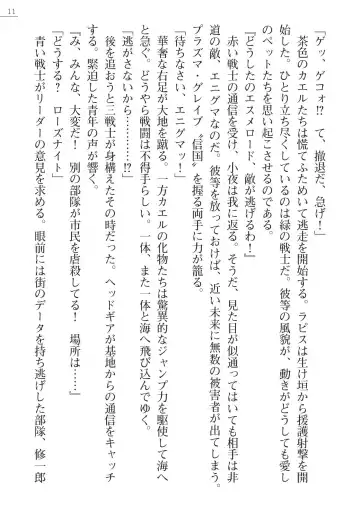 11
「ゲッ、ゲコォ!? て、撤退だ、急げ！」
茶色のカエルたちは慌てふためいて逃走を開始する。ラピスは生け垣から援護射撃を開
始した。ひとり立ち尽くしているのは緑の戦士だ。彼等の風貌が、動きがどうしても愛し
のペットたちを思い起こさせるのである。
「どうしたのエスメロード、敵が逃げるわ！」
赤い戦士の通信を受け、小夜は我に返る。そうだ、見た目が似通ってはいても相手は非
道の敵、エニグマなのだ。彼等を放っておけば、近い未来に無数の被害者が出てしまう。
プラズマ・グレイブ〝信国〟を握る両手に力が籠る。
「待ちなさい、エニグマッ！」
華奢な右足が大地を蹴る。一方カエルの化物たちは驚異的なジャンプ力を駆使して海へ
と急ぐ。どうやら戦闘は不得手らしい。一体、また一体と海へ飛び込んでゆく。
「逃がさないから……――!?」
後を追おうと三戦士が身構えたその時だった。ヘッドギアが基地からの通信をキャッチ
する。緊迫した青年の声が響く。
『み、みんな、大変だ！ 別の部隊が市民を虐殺してる！ 場所は……』
「どうする？ ローズナイト」
青い戦士がリーダーの意見を求める。眼前には街のデータを持ち逃げした部隊、修一郎